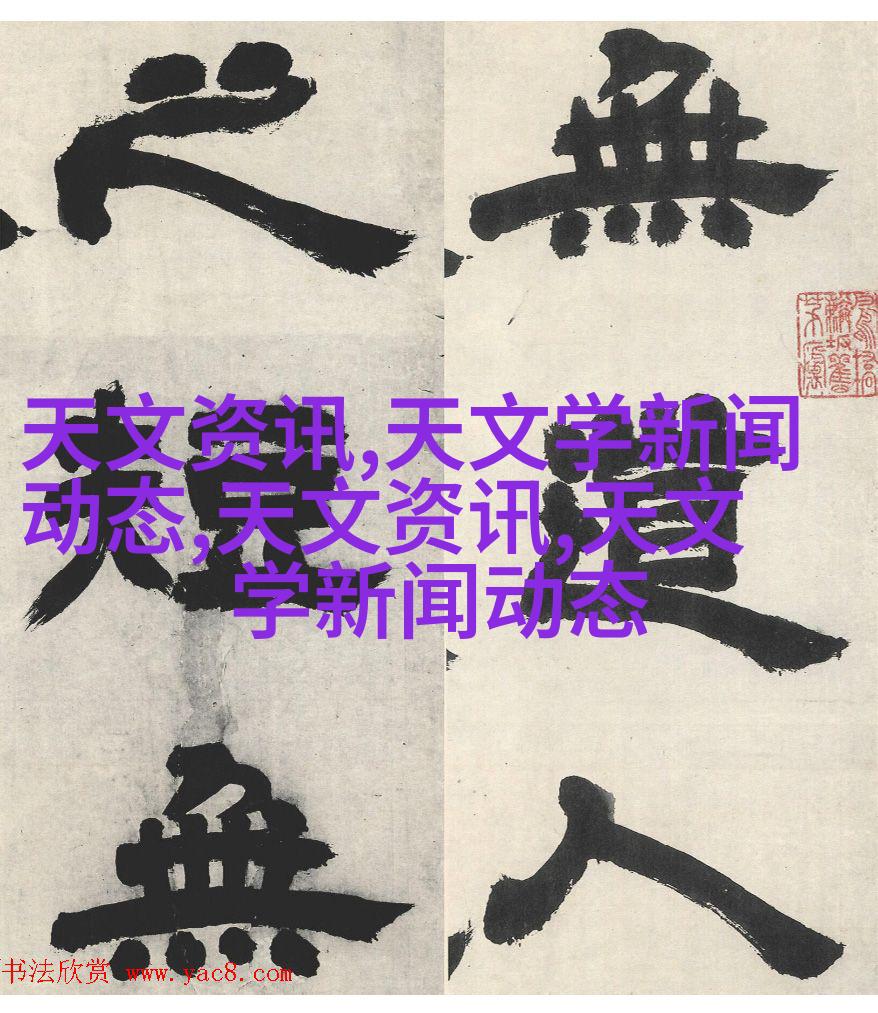 無道人
之短無
天文资讯,天文学新闻
动态,天文资讯,天文
学新闻动态
书法欣赏 www.yac8.com